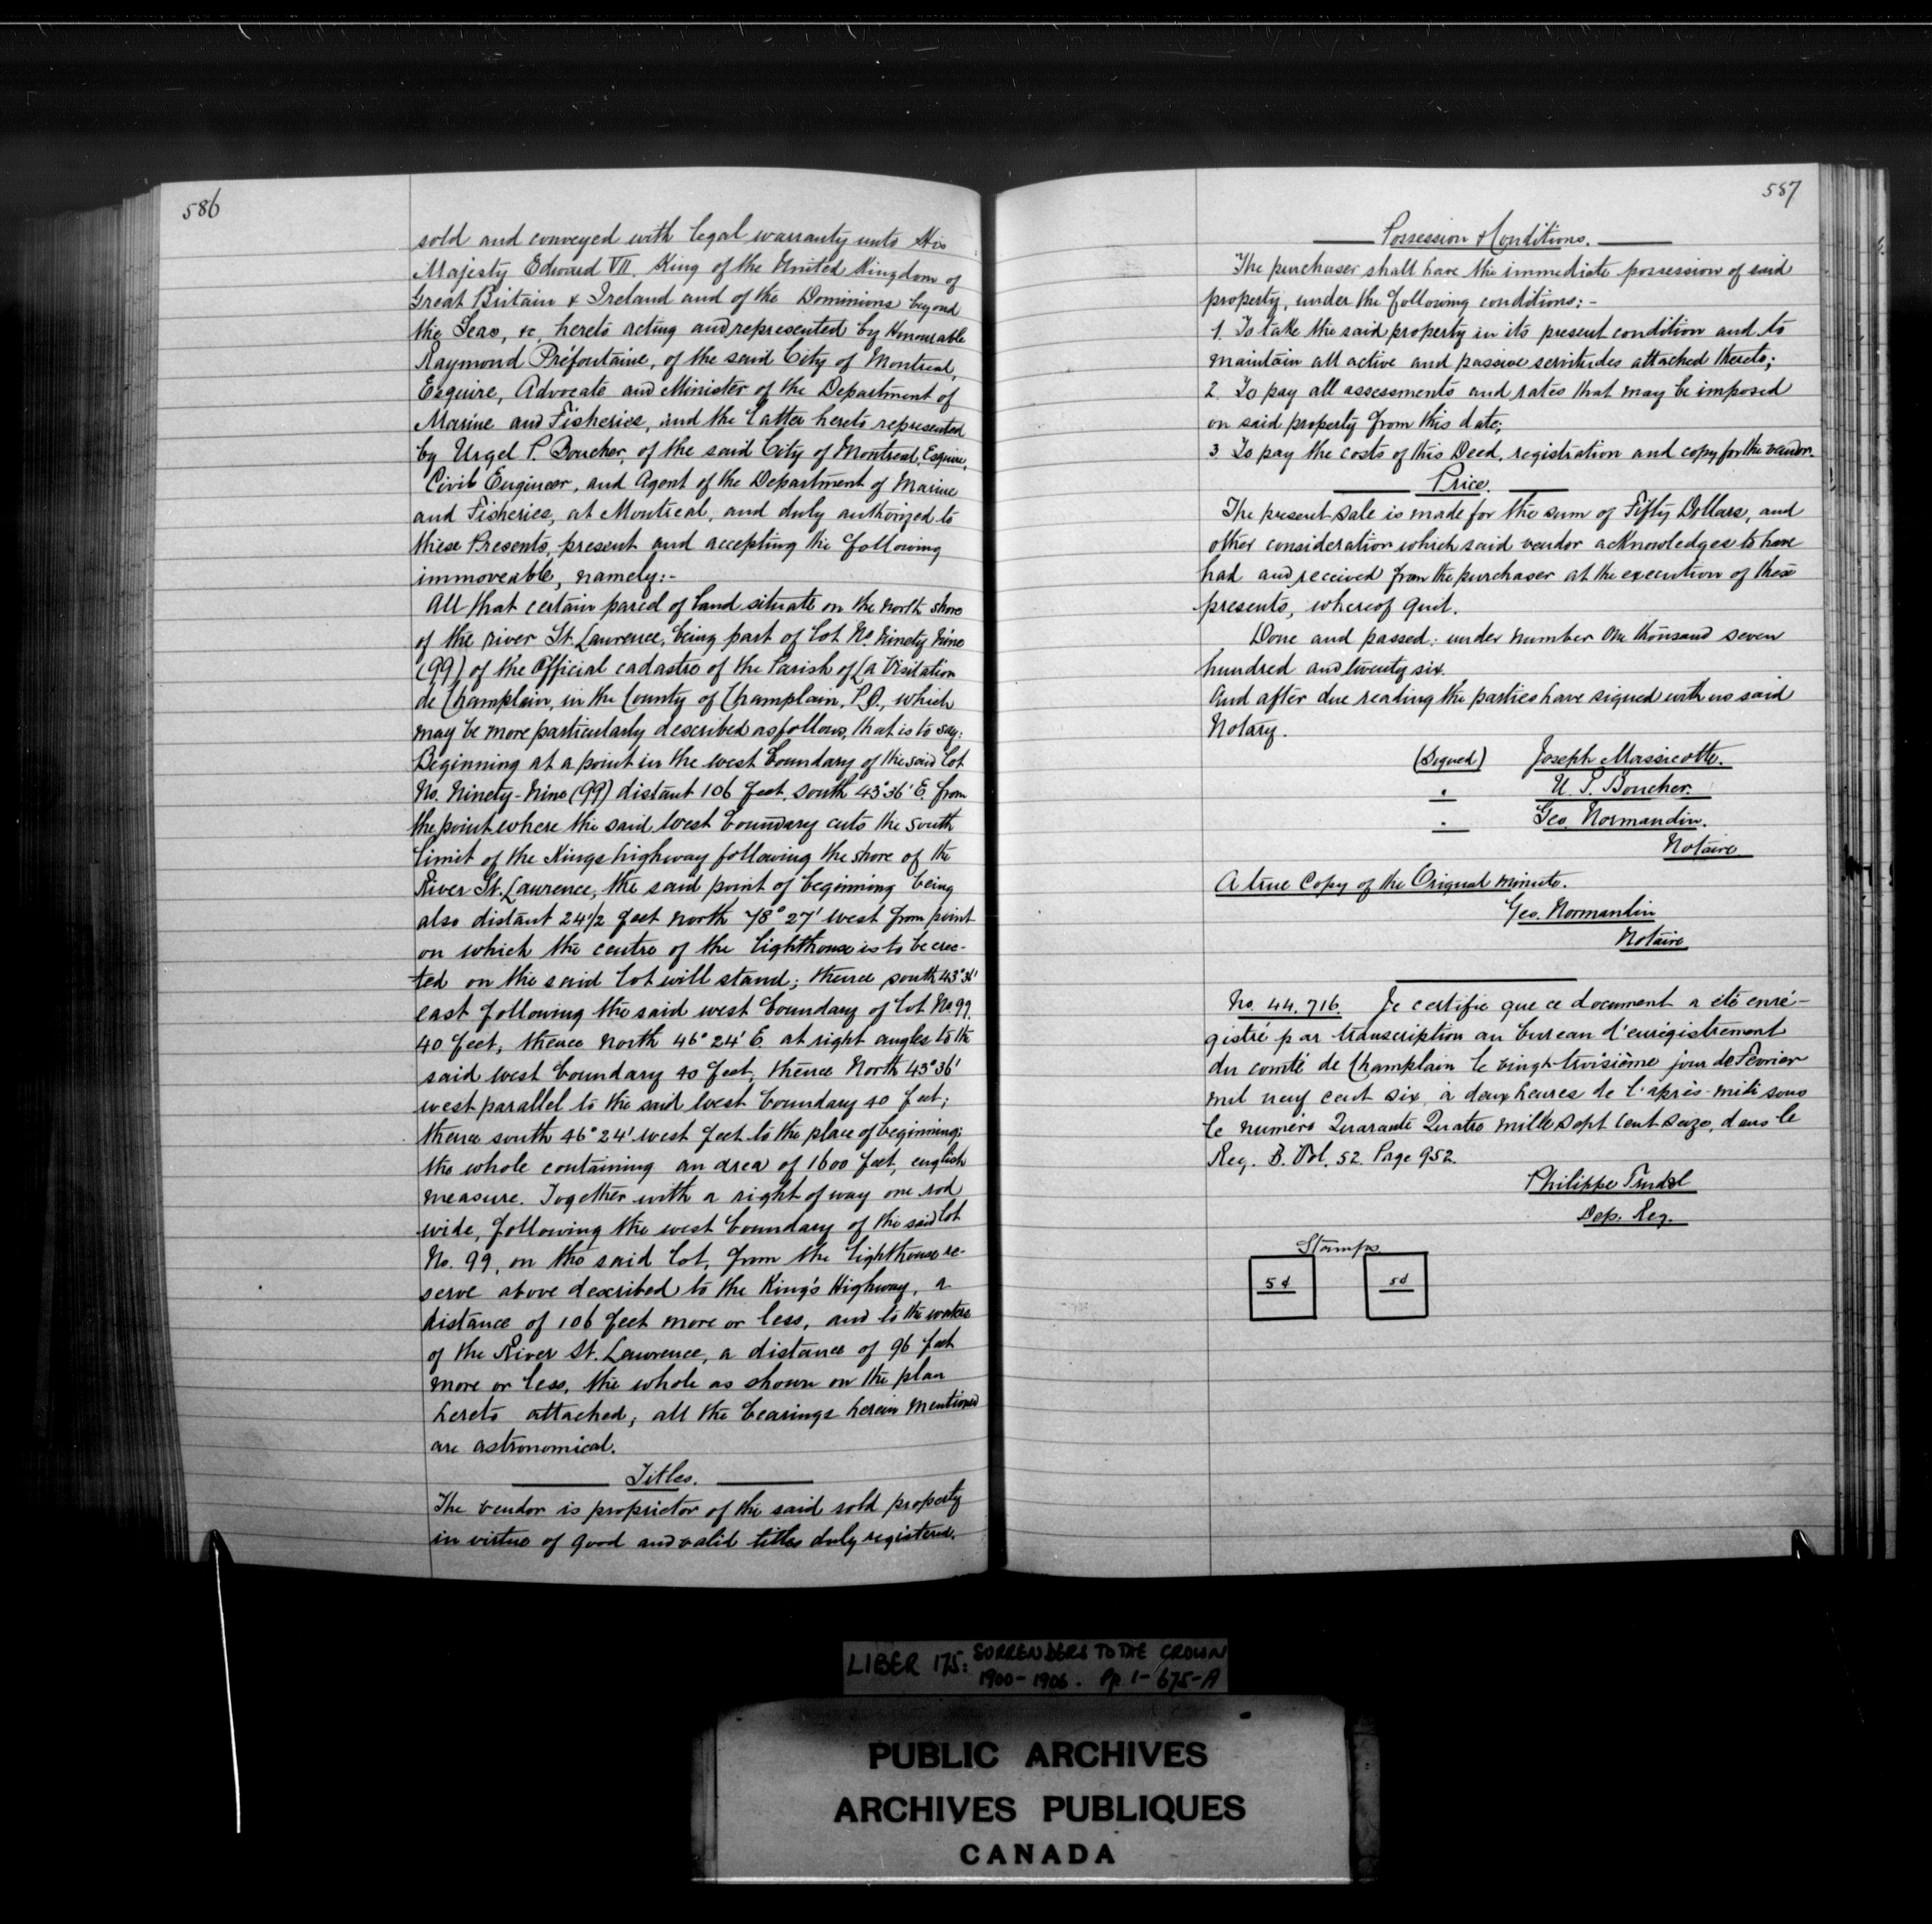 586
sold and conveyed with legal warranty unto His
Majesty Edward VII. King of the United Kingdom of
Great Britain & Ireland and of the Dominions beyond
the Seas, &c, hereto acting and represented by Honourable
Raymond Préfontaine, of the said City of Montreal,
Esquire, Advocate and Minister of the Department of
Marine and Fisheries, and the latter hereto represented
by Urgel P. Boucher, of the said City of Montreal, Esquire,
Civil Engineer, and Agent of the Department of Marine
and Fisheries, at Montreal, and duly authorized to
these Presents, present and accepting the following
immoveable, namely:-
All that certain parcel of land situate on the North shore
of the river St. Lawrence, being part of lot No. Ninety Nine
(99) of the Official cadastre of the Parish of La Visitation
de Champlain, in the County of Champlain, P.Q., which
may be more particularly described as follows, that is to say:
Beginning at a point in the west boundary of the said lot
No. Ninety-Nine (99) distant 106 feet, South 43° 36' E. from
the point where the said West boundary cuts the South
limit of the Kings highway following the shore of the
River St. Lawrence, the said point of beginning being
also distant 24 1/2 feet North 78° 27' west from point
on which the centre of the lighthouse is to be erec-
ted on the said lot will stand; thence south 43° 36'
east following the said west boundary of lot No. 99.
40 feet, thence North 46° 24' E. at right angles to the
said west boundary 40 feet; thence North 43° 36'
west parallel to the said west boundary 40 feet;
thence south 46° 24' west feet to the place of beginning;
the whole containing an area of 1600 feet, english
measure. Together with a right of way one rod
wide, following the west boundary of the said lot
No. 99, on the said lot, from the lighthouse re-
serve above described to the King's Highway, a
distance of 106 feet more or less, and to the waters
of the River St. Lawrence, a distance of 96 feet
more or less, the whole as shown on the plan
hereto attached; all the bearings herein mentioned
are astronomical.
Titles.
The vendor is proprietor of the said sold property
in virtue of good and valid titles duly registered.
587
Possession & Conditions.
The purchaser shall have the immediate possession of said
property, under the following conditions:-
1. To take the said property in its present condition and to
maintain all active and passive servitudes attached thereto;
2. To pay all assessments and rates that may be imposed
on said property from this date;
3. To pay the costs of this Deed, registration and copy for the vendor.
Price.
The present sale is made for the sum of Fifty Dollars, and
other consideration which said vendor acknowledges to have
had and received from the purchaser at the execution of these
presents, whereof quit.
Done and passed: under number One thousand seven
hundred and twenty six.
And after due reading the parties have signed with us said
Notary.
(Signed) Joseph Massicotte.
" U. P. Boucher.
" Geo. Normandin.
Notaire
A true Copy of the Original minute.
Geo. Normandin
Notaire
No. 44.716. Je certifie que ce document a été enré-
gistré par transcription au bureau d'enregistrement
du comté de Champlain le vingt-troisième jour de Février
mil neuf cent six, à deux heures de l'après-midi sous
le numéro Quarante Quatre mille sept cent seize, dans le
Reg. B. Vol. 52. Page 952.
Philippe Trudel
Dep. Reg.
Stamps
5¢ 5¢
LIBER 175: SURRENDERS TO THE CROWN
1900-1906. Pp. 1-675-A
PUBLIC ARCHIVES
ARCHIVES PUBLIQUES
CANADA